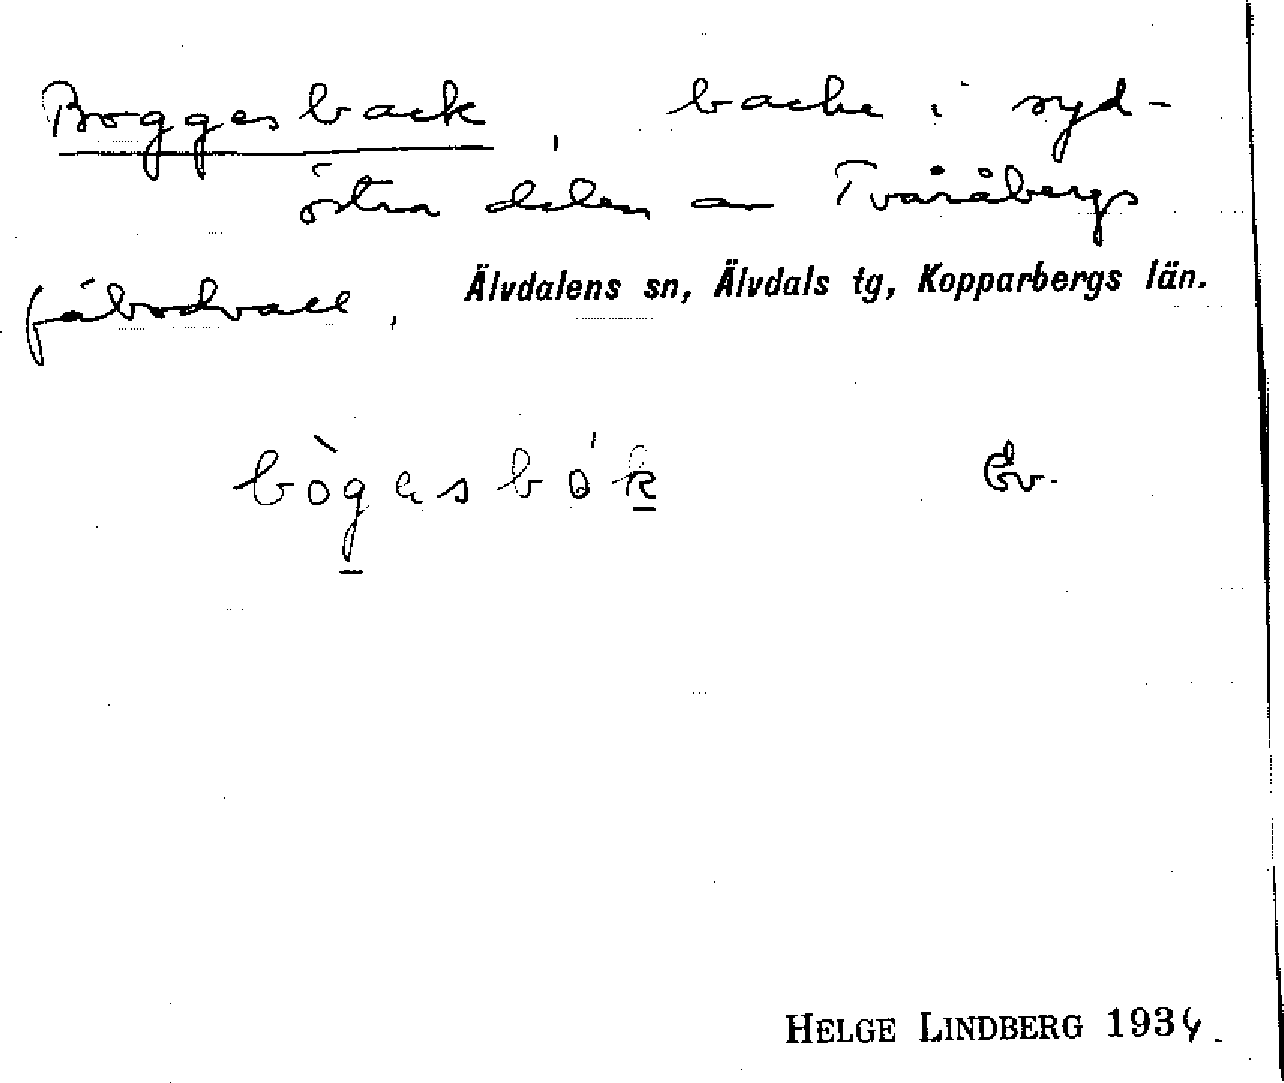 Boggesback, backe i syd-
östra delen av Tvåråbergs
fäbodvall. Älvdalens sn, Älvdals tg, Kopparbergs län.
bògasbók Ev.
HELGE LINDBERG 1934.